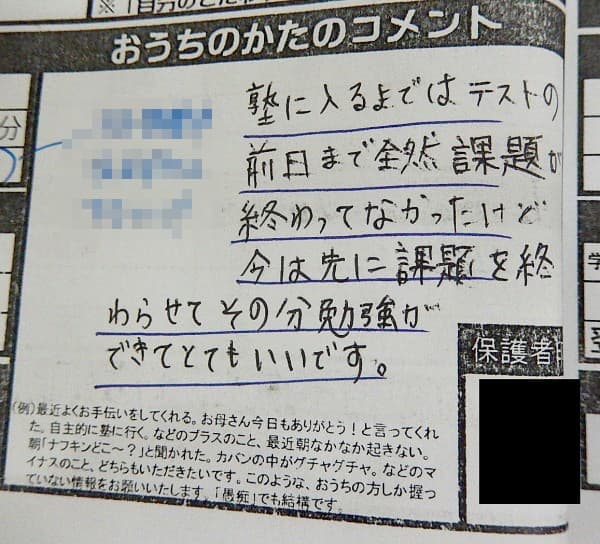 ※「自分の
おうちのかたのコメント
分
塾に入るまでは テストの
前日まで全然 課題が
終わってなかったけど
今は先に課題を終
わらせて その分勉強が
できてとてもいいです。
保護者
(例)最近よくお手伝いをしてくれる。お母さん今日もありがとう！と言ってくれ
た。自主的に塾に行く。などのプラスのこと、最近朝なかなか起きない。
朝「ナフキンどこ～？」と聞かれた。カバンの中がグチャグチャ。などのマ
イナスのこと、どちらもいただきたいです。このような、おうちの方しか握っ
ていない情報をお願いいたします。「愚痴」でも結構です。